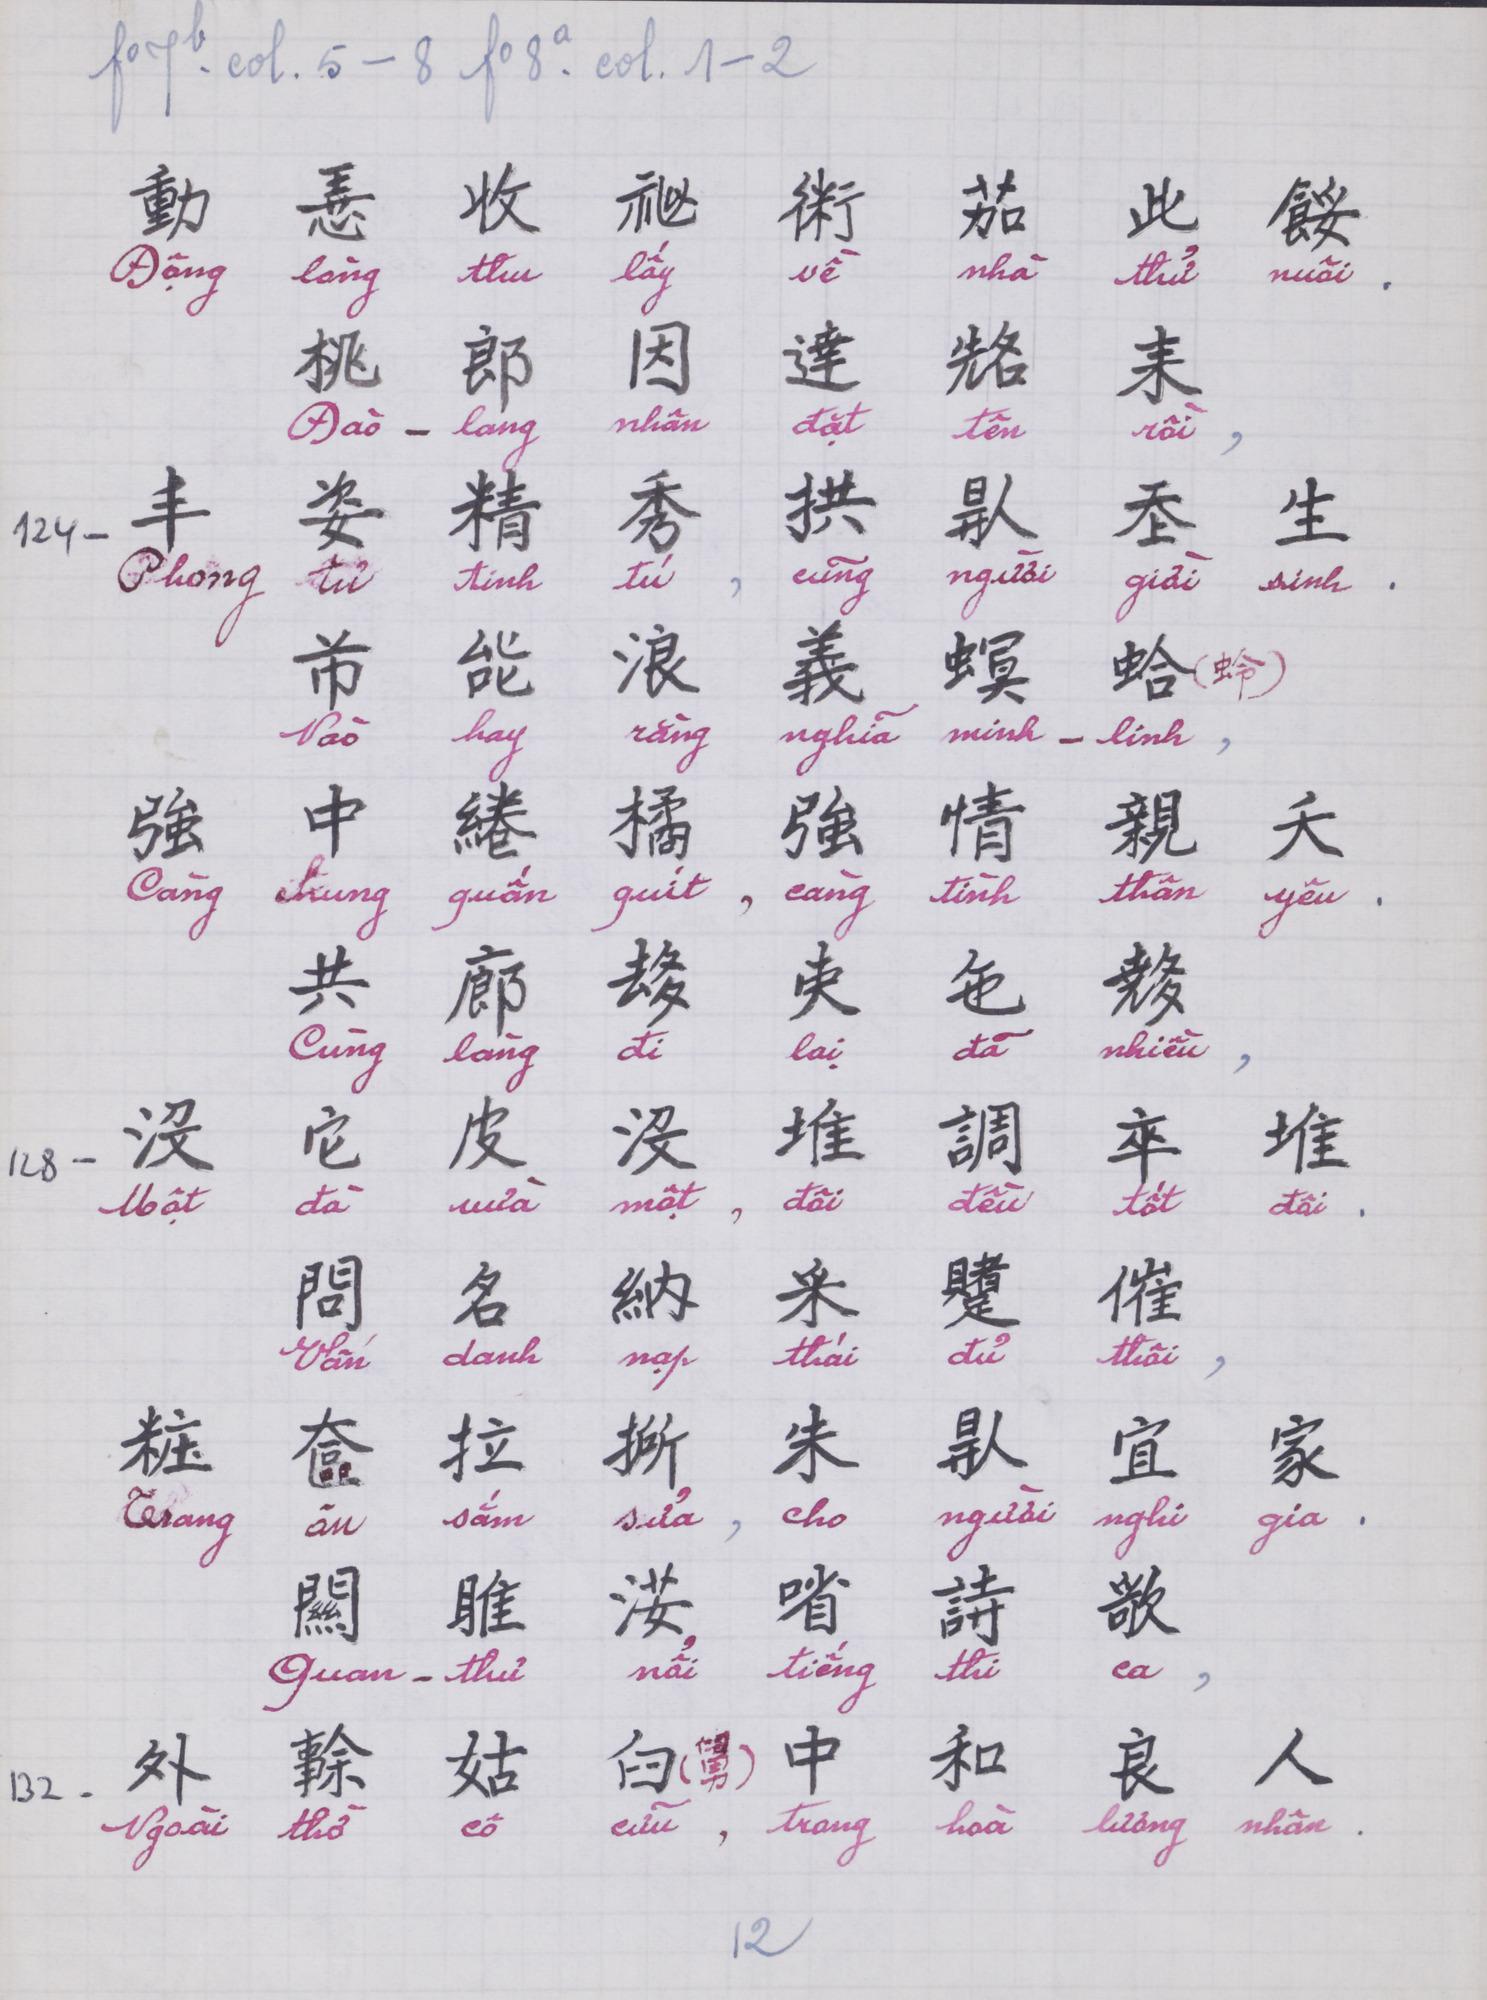 fo 7b. col. 5-8 fo 8a. col. 1-2
動 收 祕 術 茄 此 餒
Động lòng thu lấy về nhà thử nuôi.
桃 郎 因 達 耒
Đào-lang nhân đặt tên rồi,
124- 丰 姿 精 秀 拱 𠊛 𡗶 生
Phong tư tinh tú, cũng người giời sinh.
芇 能 浪 義 螟 蛤 (蛉)
Nào hay rằng nghĩa minh-linh,
強 中 綣 橘 強 情 親 夭
Càng chung quấn quít, càng tình thân yêu.
共 廊 𠫾 吏 㐌 𡗉
Cùng làng đi lại đã nhiều,
128- 沒 它 皮 沒 堆 調 卒 堆
Một đà vừa một, đôi đều tốt đôi.
問 名 納 采 𨇜 催
Vấn danh nạp thái đủ thôi,
粧 奩 拉 𢭂 朱 𠊛 宜 家
Trang âu sắm sửa, cho người nghi gia.
關 雎 㳶 㗂 詩 歌
Quan-thư nổi tiếng thi ca,
132- 外 姑 臼 (舅) 中 和 良 人
Ngoài thờ cô cữu, trong hoà lương nhân.
12